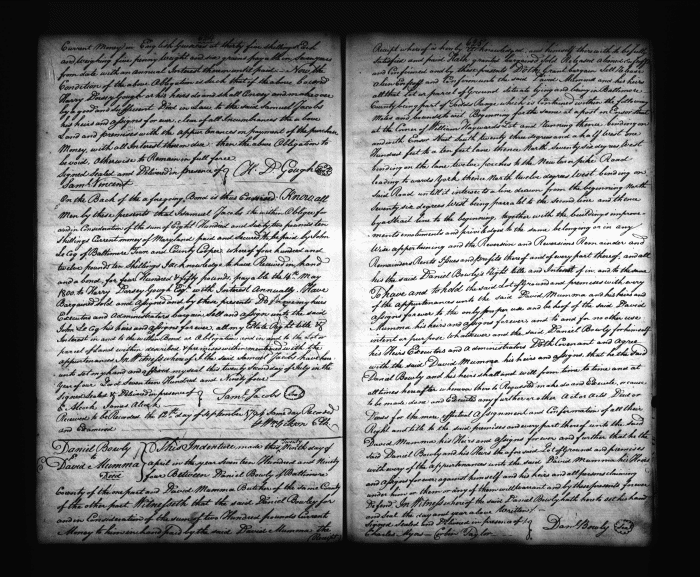 Current Money in English Guineas at thirty five shillings Each
and weighing five penny weight and six grains payable in
from date with an annual Interest thereon till paid Now the
Condition of the above Obligation is such that if the above bound
Harry Dorsey Gough or his heirs do and shall Convey and make over
by a good and sufficient Deed in Law to the said Samuel Jacobs
his heirs and assigns for ever clear of all incumbrances the above
Land and premises with the appurtenances on payment of the purchase
Money, with all Interest thereon due then the above Obligation to
be void, otherwise to Remain in full force
Signed Sealed and Delivered in presence of H. D. Gough Seal
Saml Vincent
On the Back of the aforegoing Bond is thus Endorsed Know all
Men by these presents that I Samuel Jacobs the within Obligee for
and in Consideration of the sum of Eight Hundred and sixty two pounds ten
Shillings Current money of Maryland paid and secured to be paid by John
Le of Baltimore Town and County Cooper whereof four hundred and
twelve pounds ten Shillings I acknowledge to have Received in hand
and a bond for four Hundred & fifty pounds payable the 14th May
1800 to Harry Dorsey Gough Esqr with Interest Annually Have
Bargained sold and assigned and by these presents Do for me my heirs
Executors and Administrators bargain sell and assign unto the said
John Le his heirs and assigns for ever all my Estate Right title &
Interest in and to the within Bond or Obligation and in and to the Lot or
parcel of Land within described & premises within mentioned with the
appurtenances In Witness whereof I the said Samuel Jacobs have here
unto set my hand and affixed my seal this twenty second day of July in the
year of our Lord Seventeen Hundred and Ninety four
Signed sealed & Delivered in presence of Saml Jacobs Seal
James Alcock
Received to be Recorded the 12th day of September 1794 same day Recorded
and Examined
Daniel Bowly
to
David Mumma
Deed
This Indenture made this Twenty Ninth day of
April in the year seventeen Hundred and Ninety
four Between Daniel Bowly of Baltimore
County of the one part and David Mumma Butcher of the same County
of the other part Witnesseth that the said Daniel Bowly for
and in Consideration of the sum of two Hundred pounds Current
Money to him in hand paid by the said David Mumma the
Receipt
Receipt whereof is hereby acknowledged and himself therewith to be fully
satisfied and paid Hath granted bargained sold Released aliened Enfeoffed
and Confirmed and by these presents Doth grant bargain sell Release
alien Enfeoff and Confirm unto the said David Mumma and his heirs
all that Lot or parcel of Ground situate lying and being in Baltimore
County being part of Todds Range which is contained within the following
Metes and bounds to wit Beginning for the same at a post on Cowen street
at the corner of William Maynards Lot and running thence binding on
said Cowen street South twenty degrees and a half West one
Hundred feet to a ten feet lane thence North seventy six degrees West
bounding on the lane twelve perches to the New turnpike Road
leading towards York thence North twelve degrees West binding on
said Road until it intersects a line drawn from the beginning North
seventy six degrees West being parallel to the second line and thence
by a straight line to the beginning, together with the buildings improve-
ments emoluments and priviledges to the same belonging or in any
Wise appertaining and the Reversion and Reversions Remainder and
Remainders Rents Issues and profits thereof and of every part thereof and all
the said Daniel Bowly's Right title and Interest of in and to the same
To have and to hold the said Lot of Ground and premises with every
of the appurtenances unto the said David Mumma and his heirs and
assigns forever to the only proper use and behoof of the said David
Mumma his heirs and assigns forever and to and for no other use
intent or purpose whatsoever and the said Daniel Bowly for himself
his Heirs Executors and Administrators Doth Covenant and agree
with the said David Mumma his heirs and assigns, that he the said
Daniel Bowly and his heirs shall and will from time to time and at
all times hereafter whenever thereto Required make do and Execute, or cause
to be made done and Executed any further other Act or Acts Deed or
Deeds for the more effectual Assignment and Confirmation of all their
Right and title to the said premises and every part thereof unto the said
David Mumma his Heirs and Assigns for ever and further that he the
said Daniel Bowly and his Heirs the aforesaid Lot of Ground and premises
with every of the appurtenances unto the said David Mumma his Heirs
and assigns for ever against himself and his heirs and all persons claiming
under him or them or any of them will warrant and by these presents forever
Defend In Witness whereof the said Daniel Bowly hath hereto set his hand
and seal the day and year above Written
Signed Sealed and Delivered in presence of Danl Bowly Seal
Charles Taylor